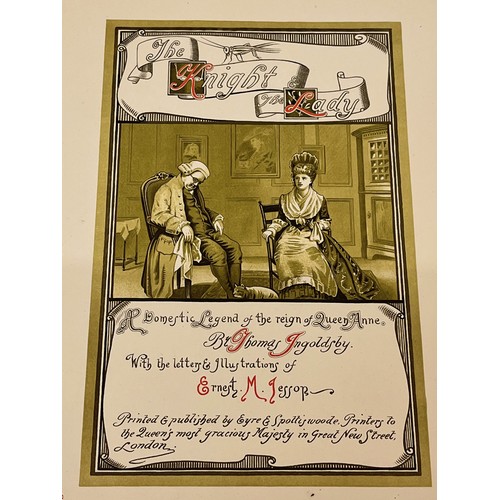 The
Knight &
The Lady.
A Domestic Legend of the reign of Queen Anne.
By Thomas Ingoldsby.
With the letters & Illustrations of
Ernest M. Jessop
Printed & published by Eyre & Spottiswoode. Printers to
the Queen's most gracious Majesty in Great New Street,
London.